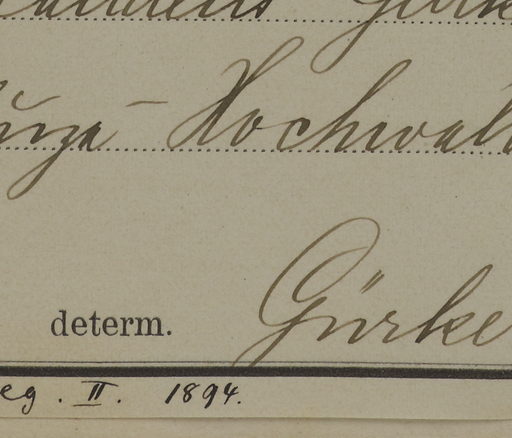 Gürk
Hochwal
determ. Gürke
eg. II. 1894.